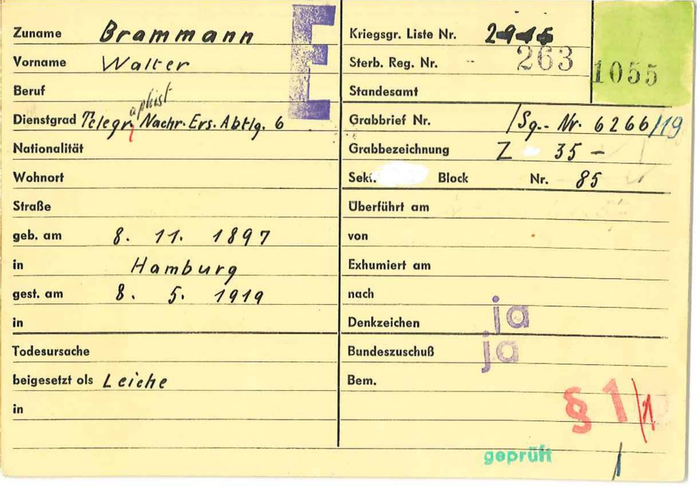 Zuname Brammann
Vorname Walter
Beruf
Dienstgrad Telegraphist Nachr. Ers. Abtlg. 6
Nationalität
Wohnort
Straße
geb. am 8. 11. 1897
in Hamburg
gest. am 8. 5. 1919
in
Todesursache
beigesetzt als Leiche
in
E
Kriegsgr. Liste Nr.
Sterb. Reg. Nr. 263
1055
Standesamt
Grabbrief Nr. /Sg.- Nr. 6266/19
Grabbezeichnung Z 35 –
Sekt. Block Nr. 85
Überführt am
von
Exhumiert am
nach
Denkzeichen ja
Bundeszuschuß ja
Bem.
§ 1/1
geprüft